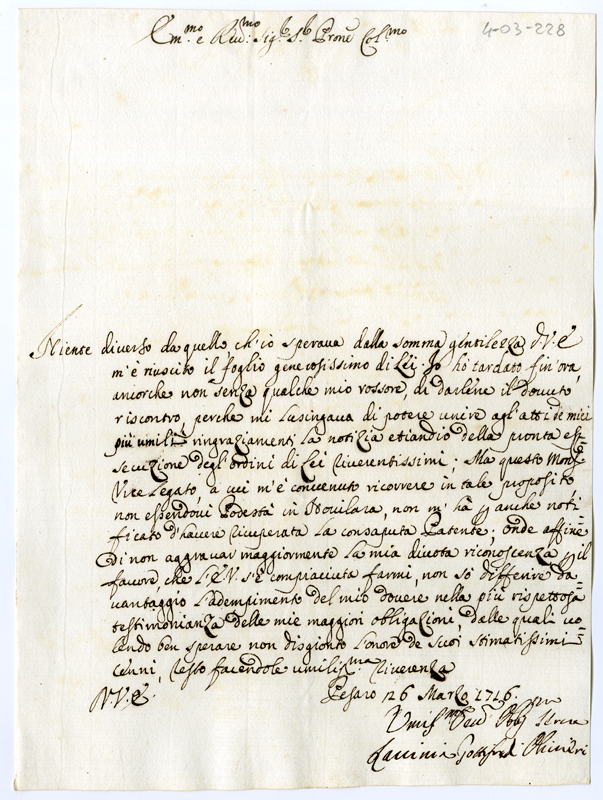 Em.mo e Rev.mo Sig.r S.r Prone Col.mo
4-03-228
Niente diverso da quello ch'io sperava dalla somma gentilezza di V.E.
m'è riuscito il foglio generosissimo di Lei. Io hò tardato fin'ora,
ancorche non senza qualche mio rossore, di darlene il dovuto
riscontro, perche mi lusingava di potere unire agl'atti de miei
più umili ringraziamenti la notizia etiandio della pronta es=
secuzione degl'ordini di Lei riveritissimi; Ma questo Mons.r
Vice Legato, a cui m'è convenuto ricorrere in tale proposito
non essendovi Podestà in Novilara, non m'hà p anche noti=
ficato d'havere ricuperata la consaputa Patente; onde affine
di non aggravar maggiormente la mia divota riconoscenza p il
favore, che l'E.V. s'è compiaciuta farmi, non sò differire da=
vantaggio l'adempimento del mio dovere nella più rispettosa
testimonianza delle mie maggiori obligazioni, dalle quali vo=
lendo ben sperare non disgionto l'onore de suoi stimatissimi
cenni, resto facendole umiliss.ma riverenza
D.V.E. Pesaro 26 Marzo 1716.
Umil.ma Dev.ma Obl.ma Serva
Lavinia Gottifredi Olivieri